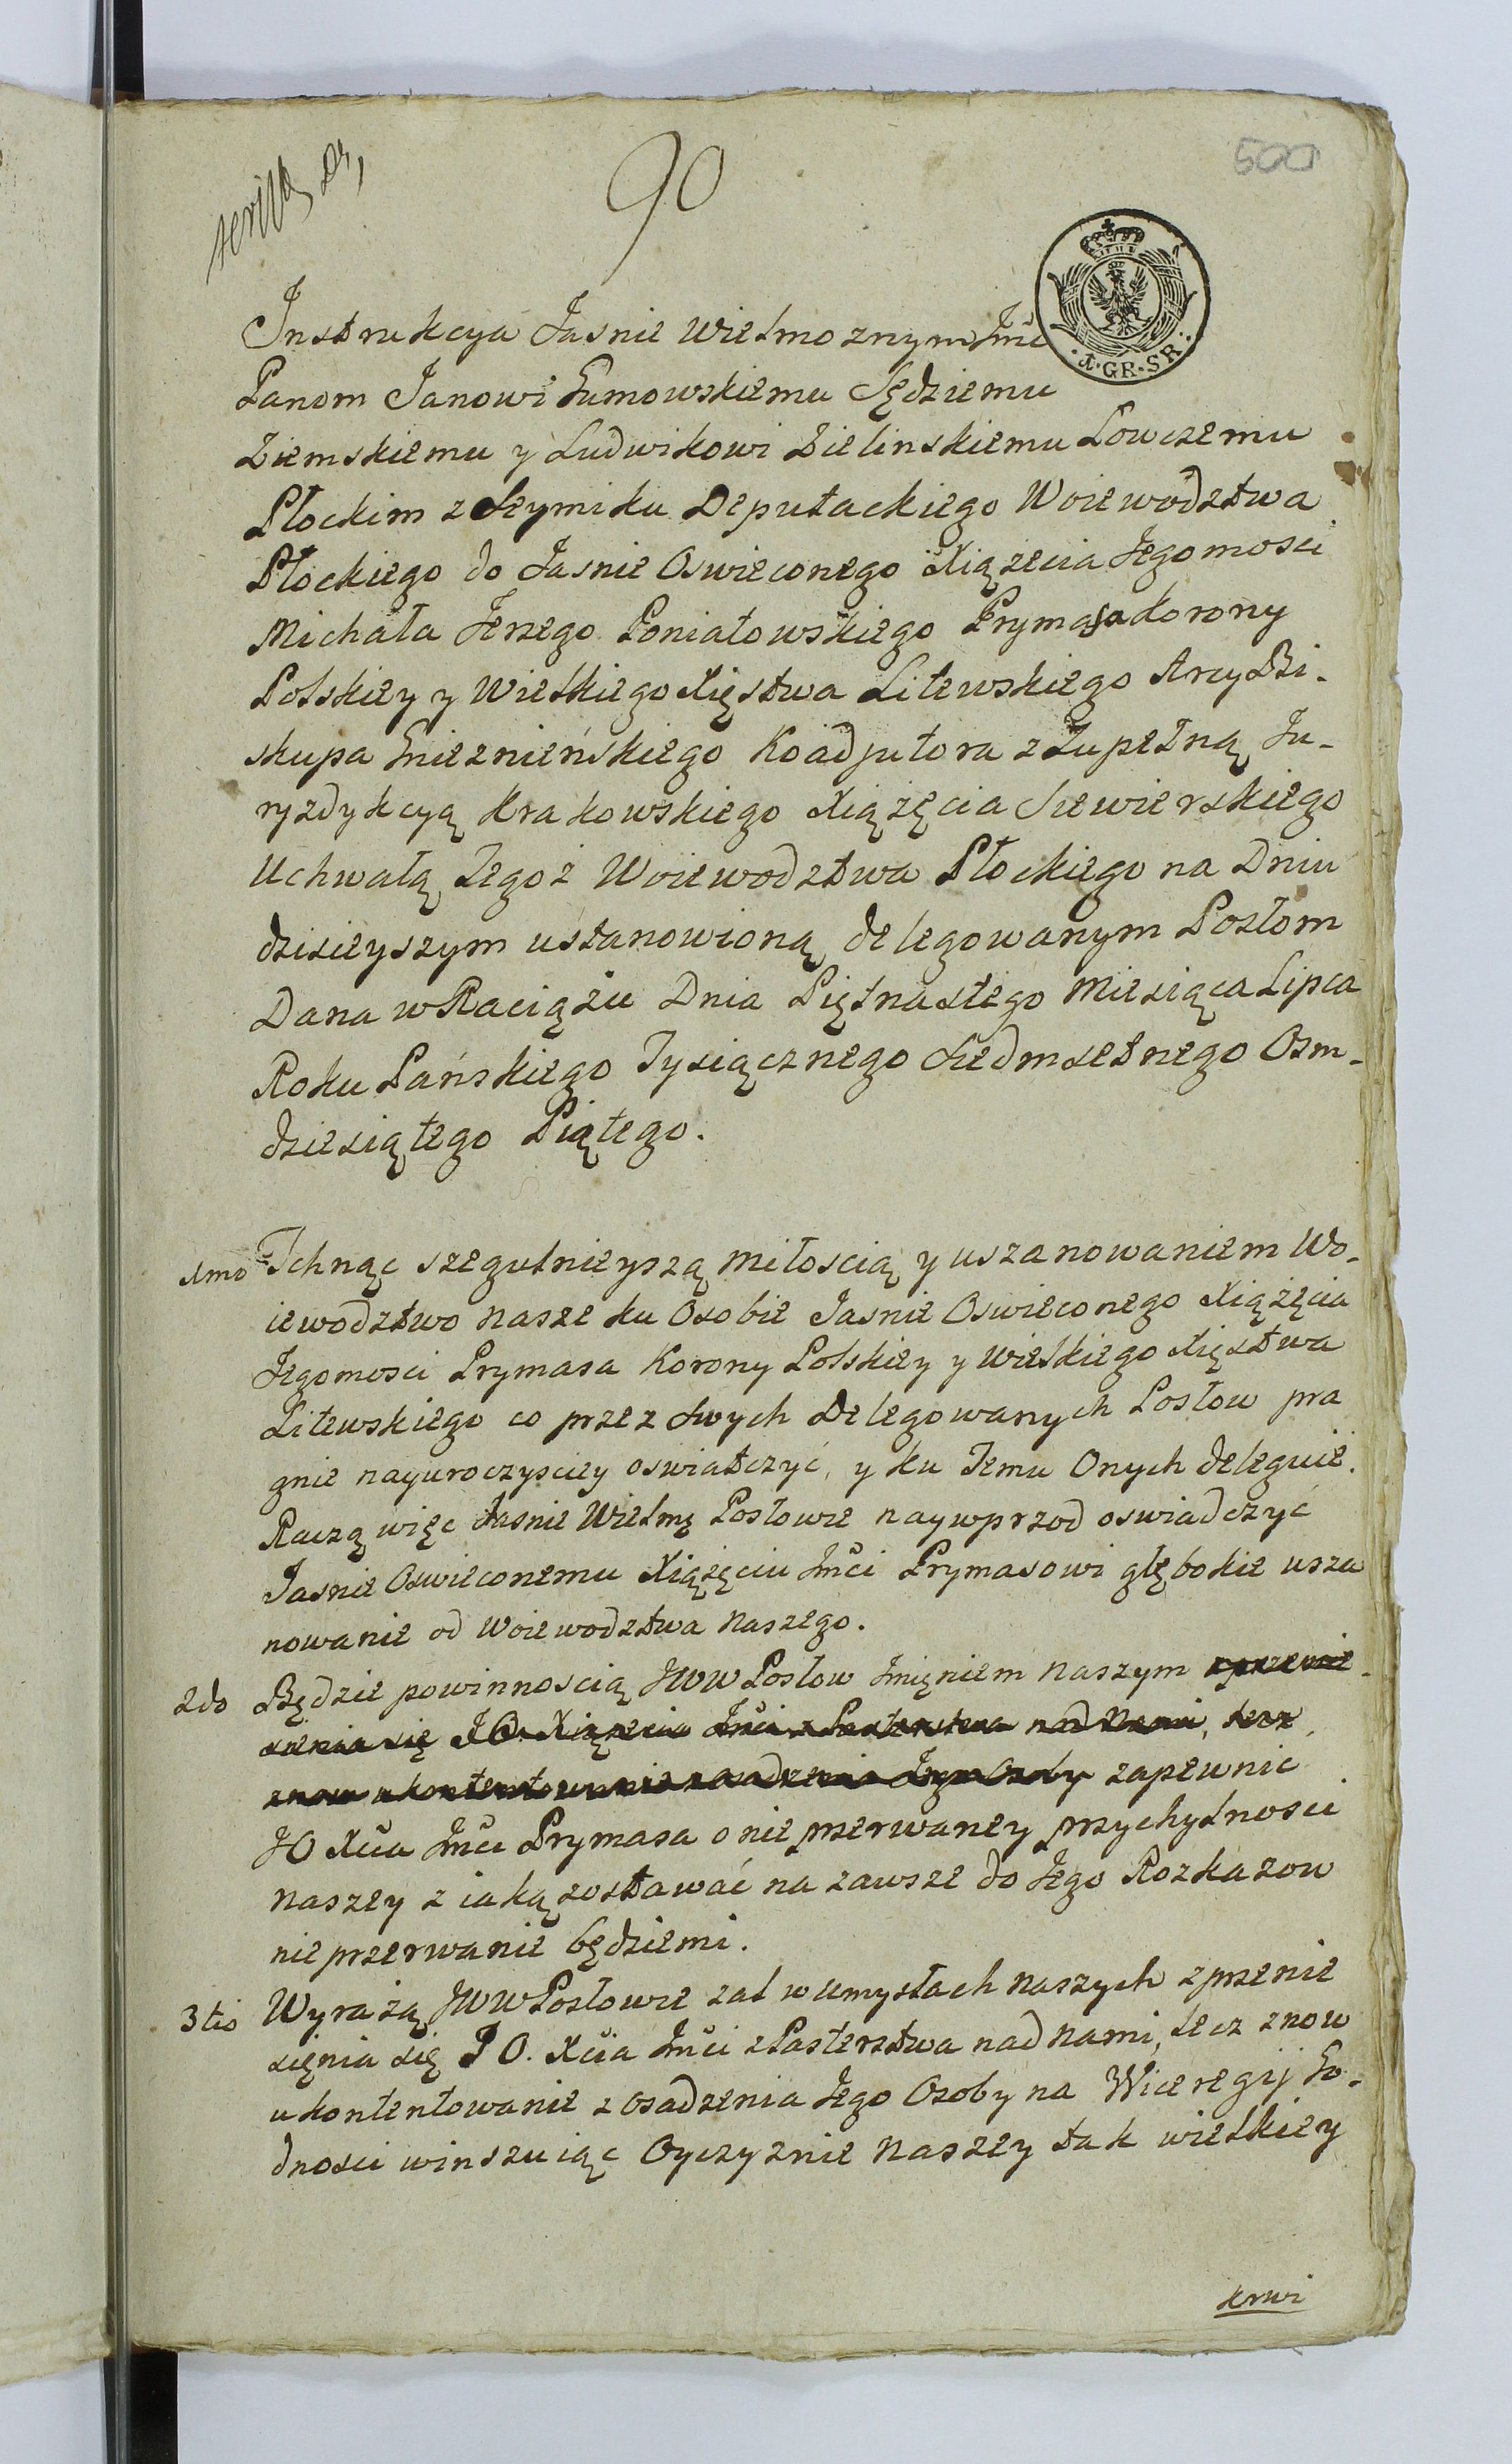 90
500
Instrukcya Jasnie Wielmoznym Imć
1.GR.SR.
Panom Janowi Gumowskiemu Sędziemu
Ziemskiemu y Ludwikowi Zielinskiemu Łowczemu
Płockim z Seymiku Deputackiego Woiewodztwa
Płockiego do Jasnie Oswieconego Xiązecia Jegomosci
Michała Jerzego Poniatowskiego Prymasa Korony
Polskiey y Wielkiego Xięstwa Litewskiego ArcyBi-
skupa Gnieznieńskiego Koadjutora z Zupełną Ju-
ryzdykcyą Krakowskiego Xiążęcia Siewierskiego
Uchwałą Tegoż Woiewodztwa Płockiego na Dniu
dzisieyszym ustanowioną delegowanym Posłom
Dana w Raciążu Dnia Piętnastego Miesiąca Lipca
Roku Pańskiego Tysiącznego Siedmsetnego Osm-
dziesiątego Piątego.
1mo Tchnąc szegulnieyszą miłoscią y uszanowaniem Wo-
iewodztwo nasze ku Osobie Jasnie Oswieconego Xiążęcia
Jegomosci Prymasa Korony Polskiey y Wielkiego Xięstwa
Litewskiego co przez Swych Delegowanych Posłow pra
gnie nayuroczysciey oswiatczyć, y ku Temu Onych deleguie.
Raczą więc Jasnie Wielmę Posłowie naywprzod oswiadczyć
Jasnie Oswieconemu Xiążęciu Imci Prymasowi głębokie usza
nowanie od Woiewodztwa Naszego.
2do Będzie powinnoscią JWW Posłow Imięniem naszym z przenie-
sienia się J O. Xiązecia Imci z Pasterstwa nad Nami, lecz
znow ukontentowanie z osadzenia Jego Osoby zapewnic
JO Xcia Imci Prymasa o nie przerwaney przychylnosci
naszey z iaką zostawać na zawsze do Jego Rozkazow
nie przerwanie będziemi.
3tio Wyrażą JWW Posłowie zal w umysłach naszych z przenie
sięnia się J O. Xcia Imci z Pasterstwa nad nami, lecz znow
ukontentowanie z osadzenia Jego Osoby na Wiceregij Go-
dnosci winszuiąc Oyczyznie naszey tak wielkiey
krwi